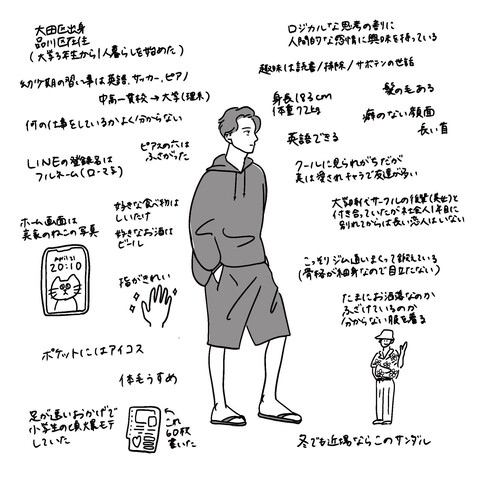 大田区出身
品川区在住
(大学3年生から1人暮らしを始めた)
幼少期の習い事は英語、サッカー、ピアノ
中高一貫校→大学(理系)
何の仕事をしているかよく分からない
ピアスの穴は
ふさがった
LINEの登録名は
フルネーム(ローマ字)
好きな食べ物は
しいたけ
好きなお酒は
ビール
ホーム画面は
実家のねこの写真
April 21
20:10
指がきれい
ポケットにはアイコス
体毛うすめ
足が速いおかげで
小学生の頃大量モテ
していた
これ
60枚
書いた
ロジカルな思考の割りに
人間的な感情に興味を持っている
趣味は読書/掃除/サボテンの世話
身長183cm
体重72kg
髪の毛ある
癖のない顔面
長い首
英語できる
クールに見られがちだが
実は愛されキャラで友達が多い
大学時代サークルの後輩(美女)と
付き合っていたが社会人1年目に
別れてからは長い恋人はいない
こっそりジム通いまくって鍛えている
(骨格が細身なので目立たない)
たまにお洒落なのか
ふざけているのか
分からない服を着る
冬でも近場ならこのサンダル